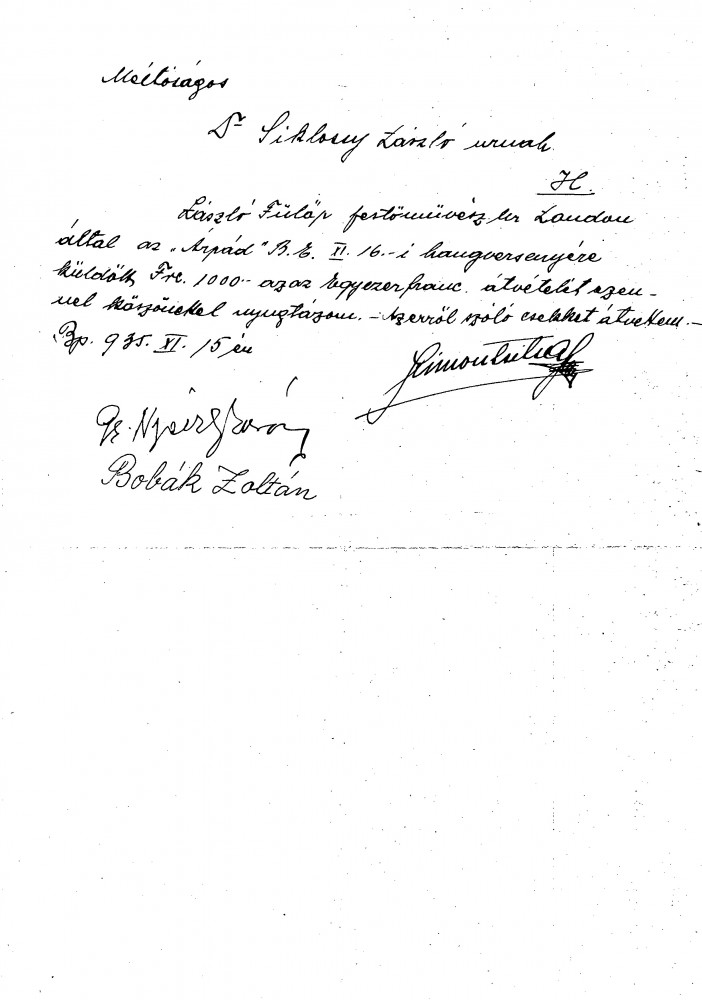 Méltóságos
Dr Siklossy László urnak.
H.
László Fülöp festőművész úr London
által az „Árpád" B.E. XI. 16.-i hangversenyére
küldött Frc. 1000.- azaz Egyezer franc. átvételét ezen-
nel köszönettel nyugtázom. - Azerről szóló csekket átvettem.-
Bp. 935. XI. 15 én
Bobák Zoltán